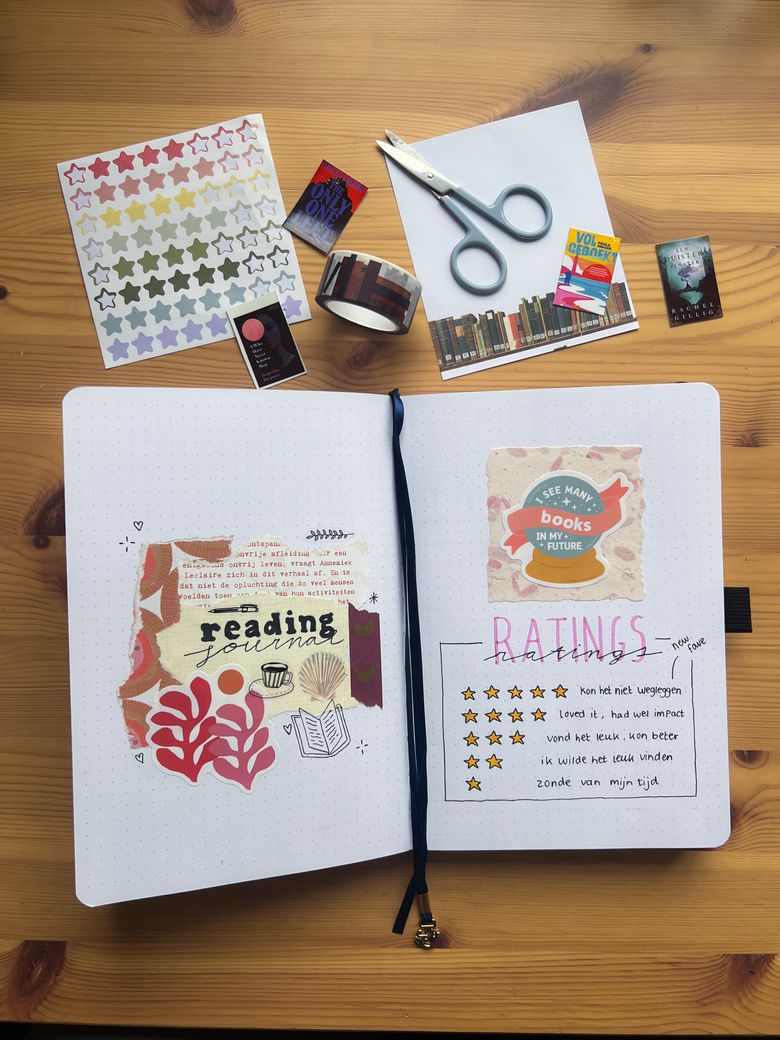 THE
ONLY
ONE
LEFT
VOL
GEBOEKT
EEN
DUISTER
VENSTER
RACHEL
GILLIG
I Who
Have
Never
Known
Men
ontspan
onvrije afleiding voor een
enigszins onvrij leven, vraagt Annemiek
Leclaire zich in dit verhaal af. En is
dat niet de opluchting die zo veel mensen
voelden toen een deel van hun activiteiten
het
reading
journal
I SEE MANY
books
IN MY
FUTURE
RATINGS
ratings
new
fave
kon het niet wegleggen
loved it, had wel impact
vond het leuk, kon beter
ik wilde het leuk vinden
zonde van mijn tijd